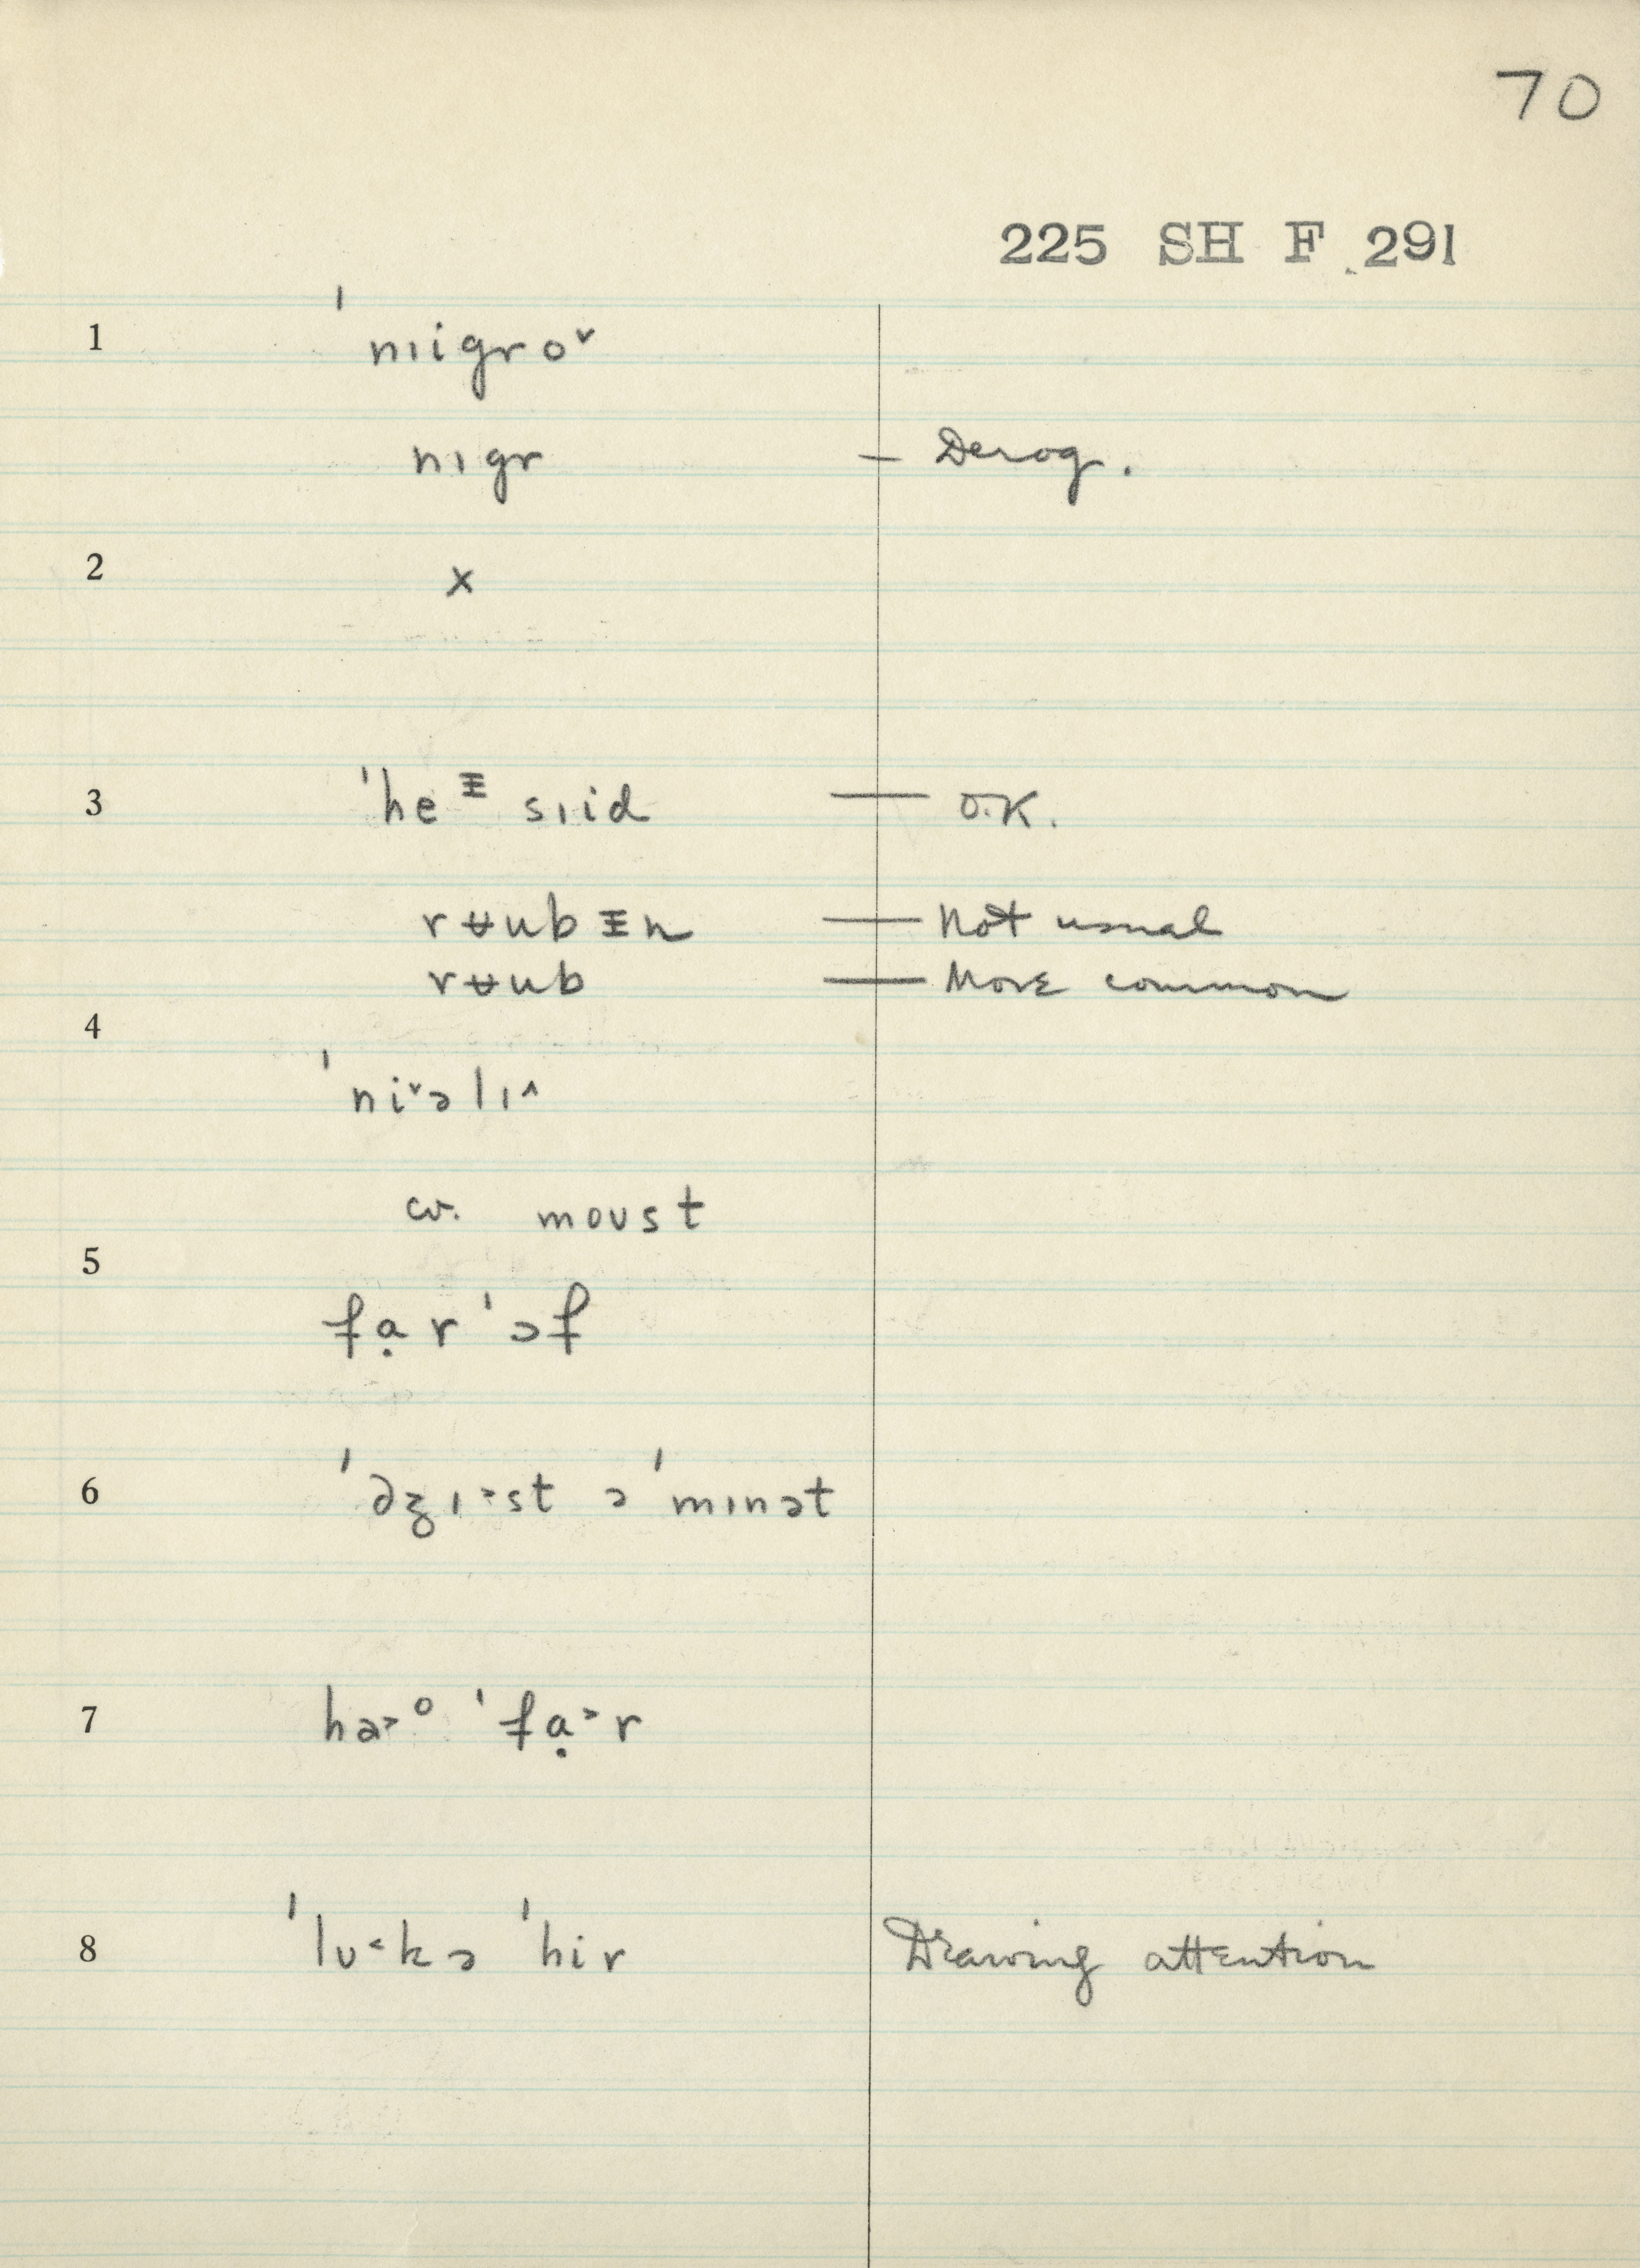 70
225 SH F 291
1 ˈnɪigro˅
nɪgr — Derog.
2 x
3 ˈheᵻ sɪid — O.K.
rʉubᵻn — Not usual
rʉub — More common
4
ˈni˅əlɪ˄
cv. moust
5
fạr ˈɔf
6 ˈdʒɪ˃st ə ˈmɪnət
7 ha˃ᵒ ˈfạ˃r
8 ˈlʊ˂kə ˈhir Drawing attention